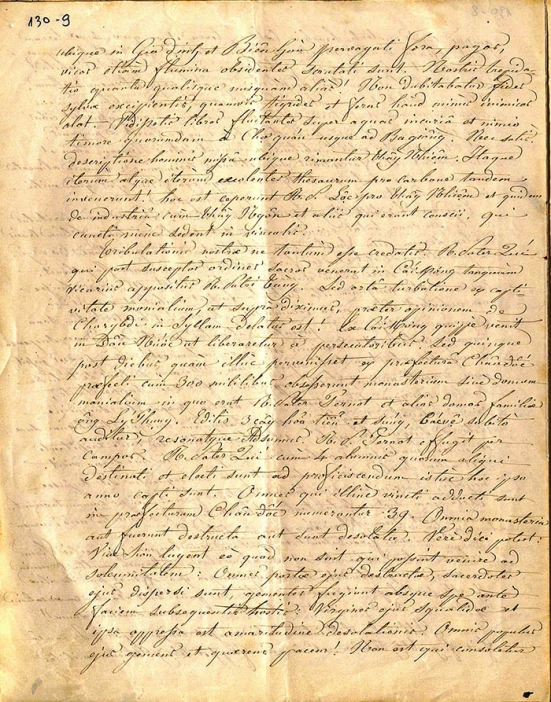 130-9
ubique in Gia dinh et Biên hòa pervagati fora, pagos,
vicos etiam flumina obsidentes scrutati sunt. Nostris
tio quanta qualisque nusquam alias! Non dubitabatur fides
sylvæ excipientis quamvis tigrides et feras haud minus inimicas
alat. libros fluitantes super aquas incuria et nimio
timore quorumdam à Chợ quán usque ad Bagiòng. Nec satis
descriptione hominis missa ubique rimantur thầy Nhiệm. Itaque
iterum atque iterum exolentes thesaurum pro carbone tandem
invenerunt: hoc est ceperunt R. P. Lộc pro thầy Nhiệm et quidem
de industria cum thầy Ngôn et aliis qui erant conscii, qui
cuncti nunc sedent in vinculis.
Tribulationis nostræ ne tantum esse credatis. R. Pater Qui
qui post susceptos ordines sacros venerat in Cái Mơng tanquam
vicarius appositus R. Patri Tùng. Sed ista turbatione et capti-
vitate monialium, ut supra diximus, præter opinionem de
Charybdi in Syllam delatus est! Ex Cái Mơng quippe venit
in Đầu Nước ut liberaretur à persecutoribus sed quinque
post diebus quam illuc pervenisset ex præfectura Châu đốc
præfecti cum 300 militibus obsepserunt monasterium sive domum
monialium in qua erat R. Pater Pernot et alias domos familiæ
ông Lý Phụng. Editis 3 cây hỏa tiễn et súng,
auditus, resonatque R. P. Pernot effugit per
campos. R. Pater Qui cum 4 alumnis quorum aliqui
destinati et electi sunt ad proficiscendum istuc hoc ipso
anno capti sunt. Omnes qui illinc vincti adducti sunt
in præfecturam Châu đốc numerantur 39. Omnia monasteria
aut fuerunt destructa aut sunt desolata. Vere dici potest:
Viæ Sion lugent eò quod non sint qui possint venire ad
solemnitatem: Omnes portæ ejus destructæ, sacerdotes
ejus dispersi sunt, gementes fugiunt absque spe ante
faciem subsequentis hostis: Virgines ejus squalidæ et
ipsa oppressa est amaritudine desolationis. Omnis populus
ejus gemens et quærens pacem! Non est qui consoletur